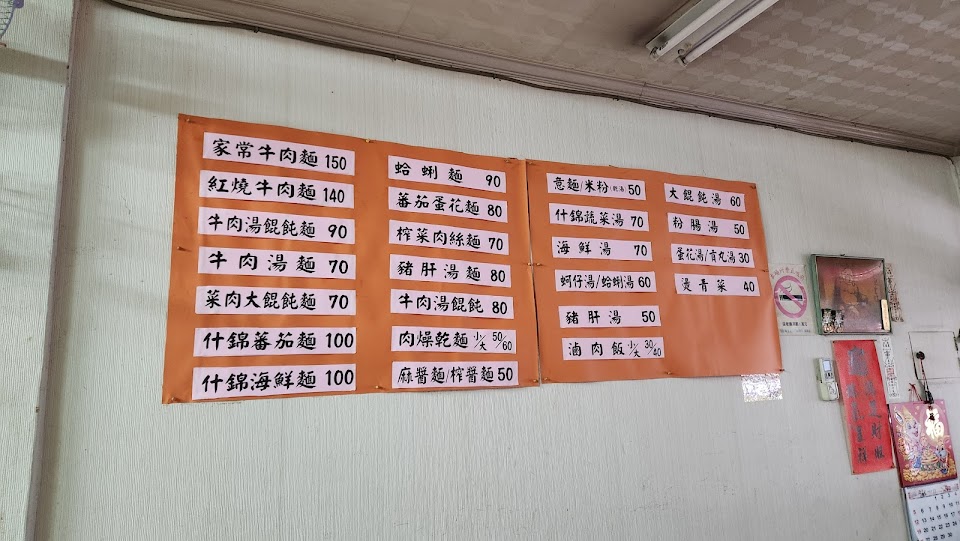 家常牛肉麵 150
紅燒牛肉麵 140
牛肉湯餛飩麵 90
牛肉湯麵 70
菜肉大餛飩麵 70
什錦蕃茄麵 100
什錦海鮮麵 100
蛤蜊麵 90
蕃茄蛋花麵 80
榨菜肉絲麵 70
豬肝湯麵 80
牛肉湯餛飩 80
肉燥乾麵 小/大 50/60
麻醬麵/榨醬麵 50
意麵/米粉(乾湯) 50
什錦蔬菜湯 70
海鮮湯 70
蚵仔湯/蛤蜊湯 60
豬肝湯 50
滷肉飯 小/大 30/40
大餛飩湯 60
粉腸湯 50
蛋花湯/貢丸湯 30
燙青菜 40
福